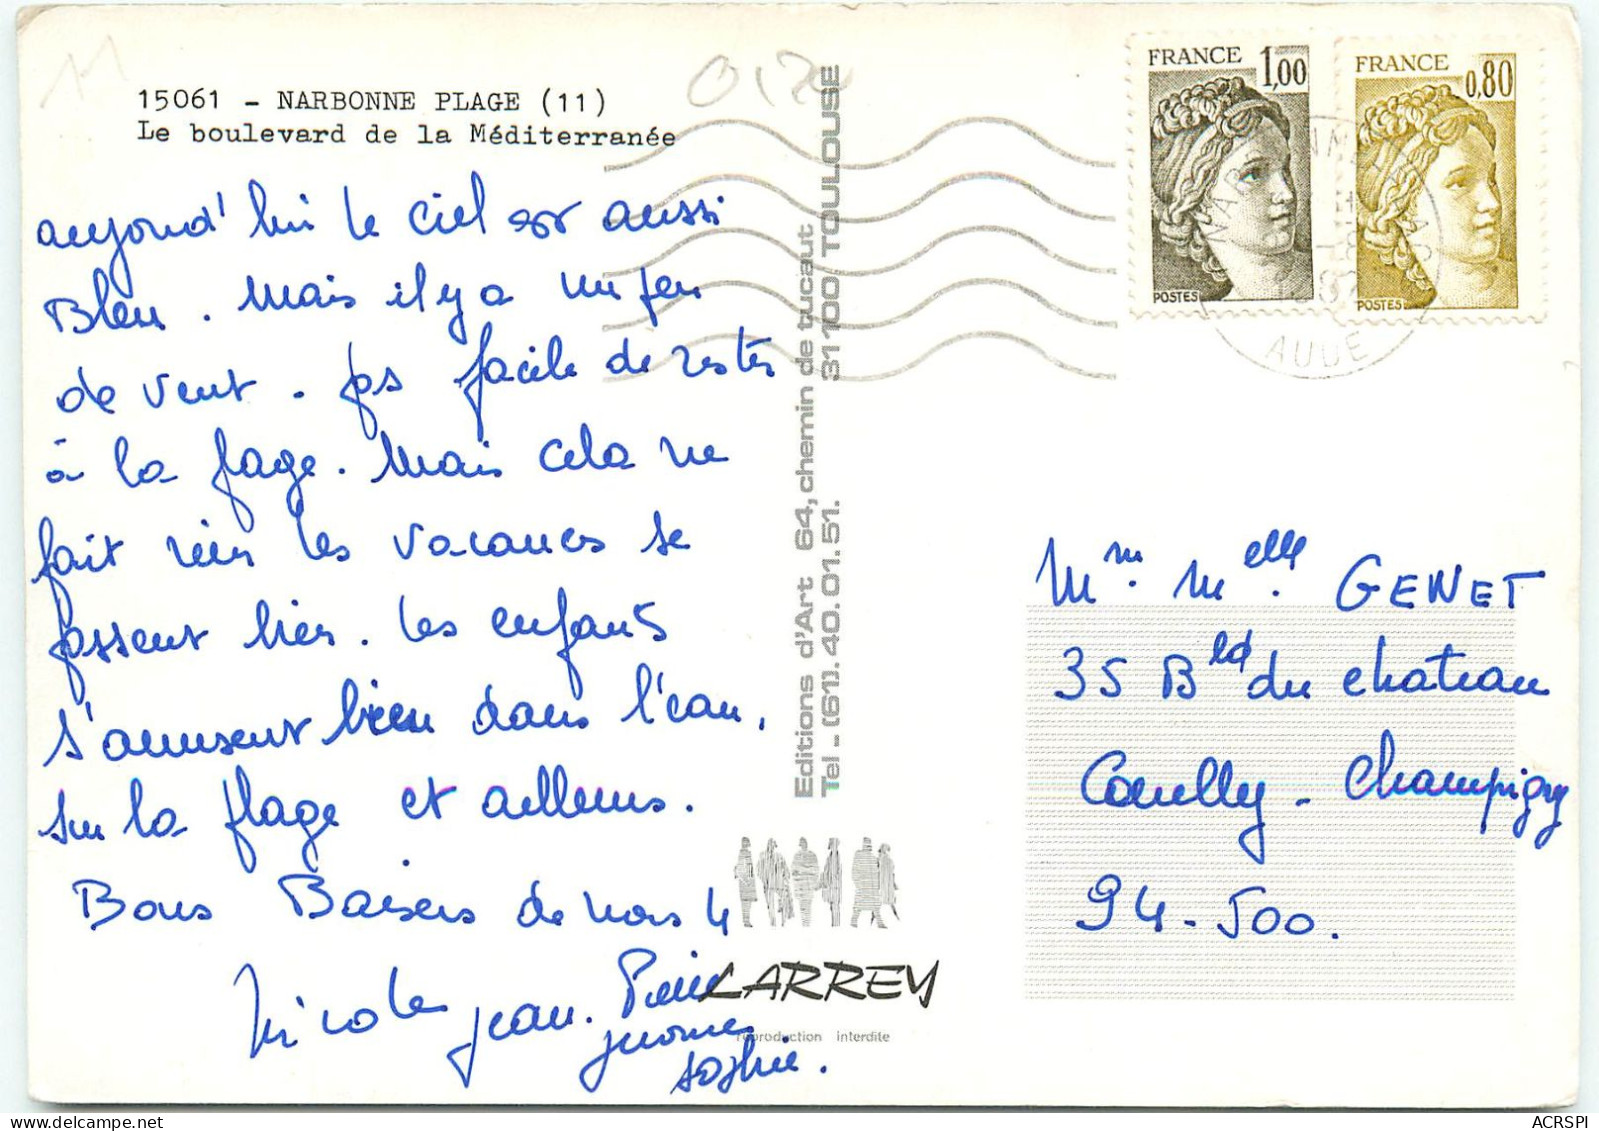 15061 - NARBONNE PLAGE (11)
Le boulevard de la Méditerranée
aujourd'hui le ciel est aussi
Bleu. Mais il y a un peu
de vent. pas facile de rester
à la plage. Mais cela ne
fait rien les vacances se
passent bien. Les enfants
s'amusent bien dans l'eau,
sur la plage et ailleurs.
Bons Baisers de nous 4
Nicole Jean. Pierre
Jerome
Sophie.
Editions d'Art 64, chemin de tucaut
Tel.. (61). 40.01.51. 31100 TOULOUSE
LARREY
reproduction interdite
FRANCE 1,00
POSTES
FRANCE 0,80
POSTES
AUDE
Mm. Melle. GENET
35 Bld du chateau
Coeuilly - Champigny
94-500.
ACRSPI